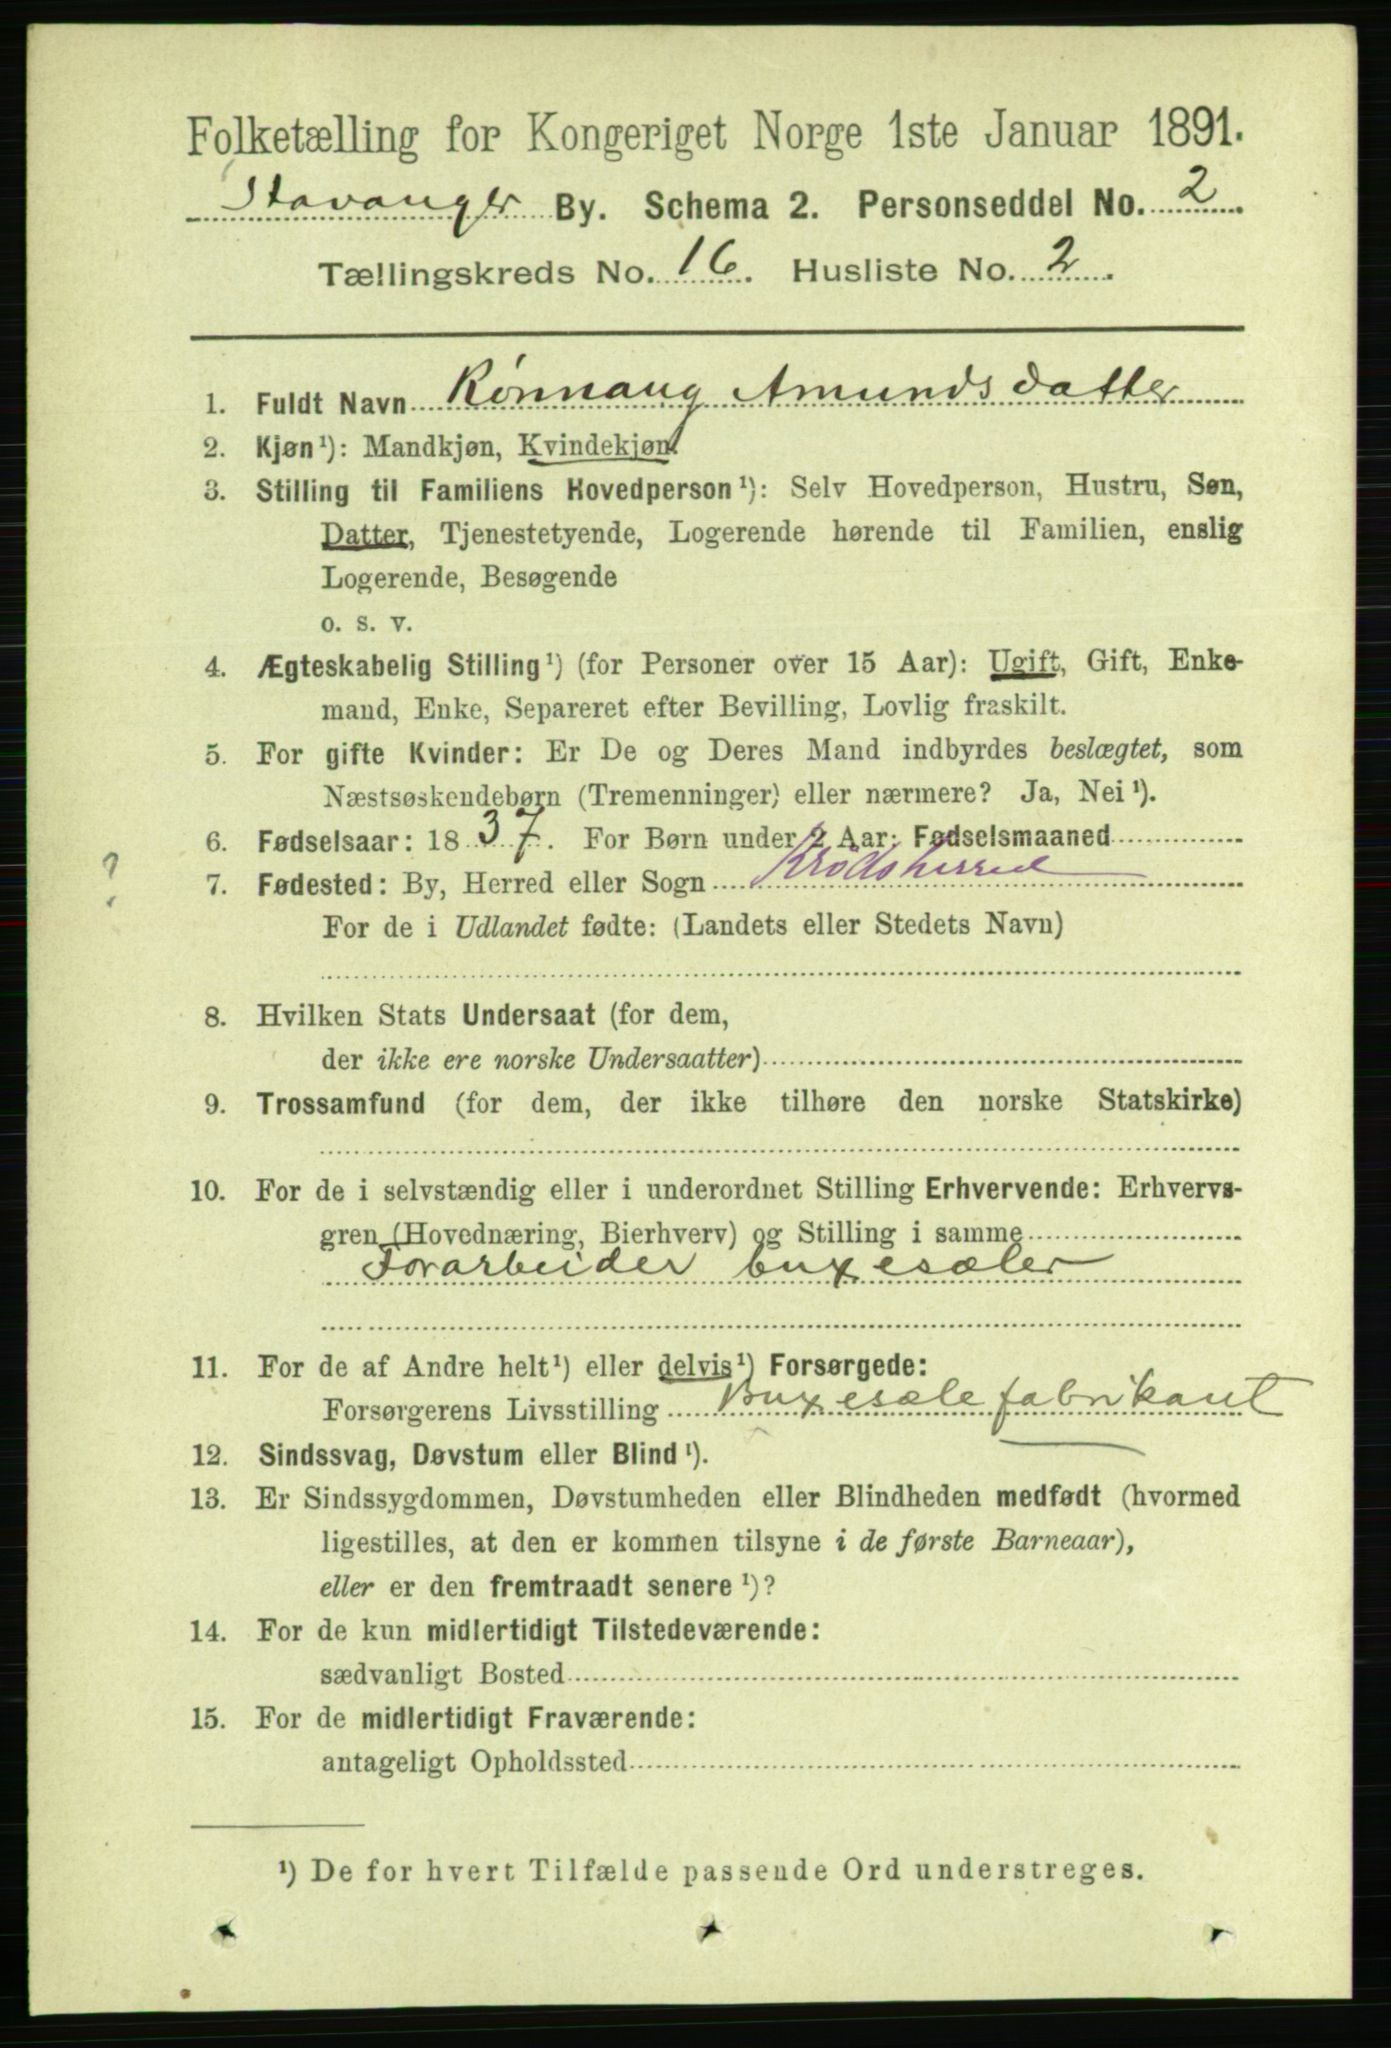 Folketælling for Kongeriget Norge 1ste Januar 1891.
Stavanger By. Schema 2. Personseddel No. 2
Tællingskreds No. 16. Husliste No. 2.
1. Fuldt Navn Rønnaug Amundsdatter
2. Kjøn¹): Mandkjøn, Kvindekjøn.
3. Stilling til Familiens Hovedperson¹): Selv Hovedperson, Hustru, Søn,
Datter, Tjenestetyende, Logerende hørende til Familien, enslig
Logerende, Besøgende
o. s. v.
4. Ægteskabelig Stilling¹) (for Personer over 15 Aar): Ugift, Gift, Enke-
mand, Enke, Separeret efter Bevilling, Lovlig fraskilt.
5. For gifte Kvinder: Er De og Deres Mand indbyrdes beslægtet, som
Næstsøskendebørn (Tremenninger) eller nærmere? Ja, Nei¹).
6. Fødselsaar: 1837. For Børn under 2 Aar: Fødselsmaaned
?
7. Fødested: By, Herred eller Sogn Krødsherred
For de i Udlandet fødte: (Landets eller Stedets Navn)
8. Hvilken Stats Undersaat (for dem,
der ikke ere norske Undersaatter)
9. Trossamfund (for dem, der ikke tilhøre den norske Statskirke)
10. For de i selvstændig eller i underordnet Stilling Erhvervende: Erhvervs-
gren (Hovednæring, Bierhverv) og Stilling i samme
Forarbeider buxesæler
11. For de af Andre helt¹) eller delvis¹) Forsørgede:
Forsørgerens Livsstilling Buxesæle fabrikant
12. Sindssvag, Døvstum eller Blind¹).
13. Er Sindssygdommen, Døvstumheden eller Blindheden medfødt (hvormed
ligestilles, at den er kommen tilsyne i de første Barneaar),
eller er den fremtraadt senere¹)?
14. For de kun midlertidigt Tilstedeværende:
sædvanligt Bosted
15. For de midlertidigt Fraværende:
antageligt Opholdssted
¹) De for hvert Tilfælde passende Ord understreges.